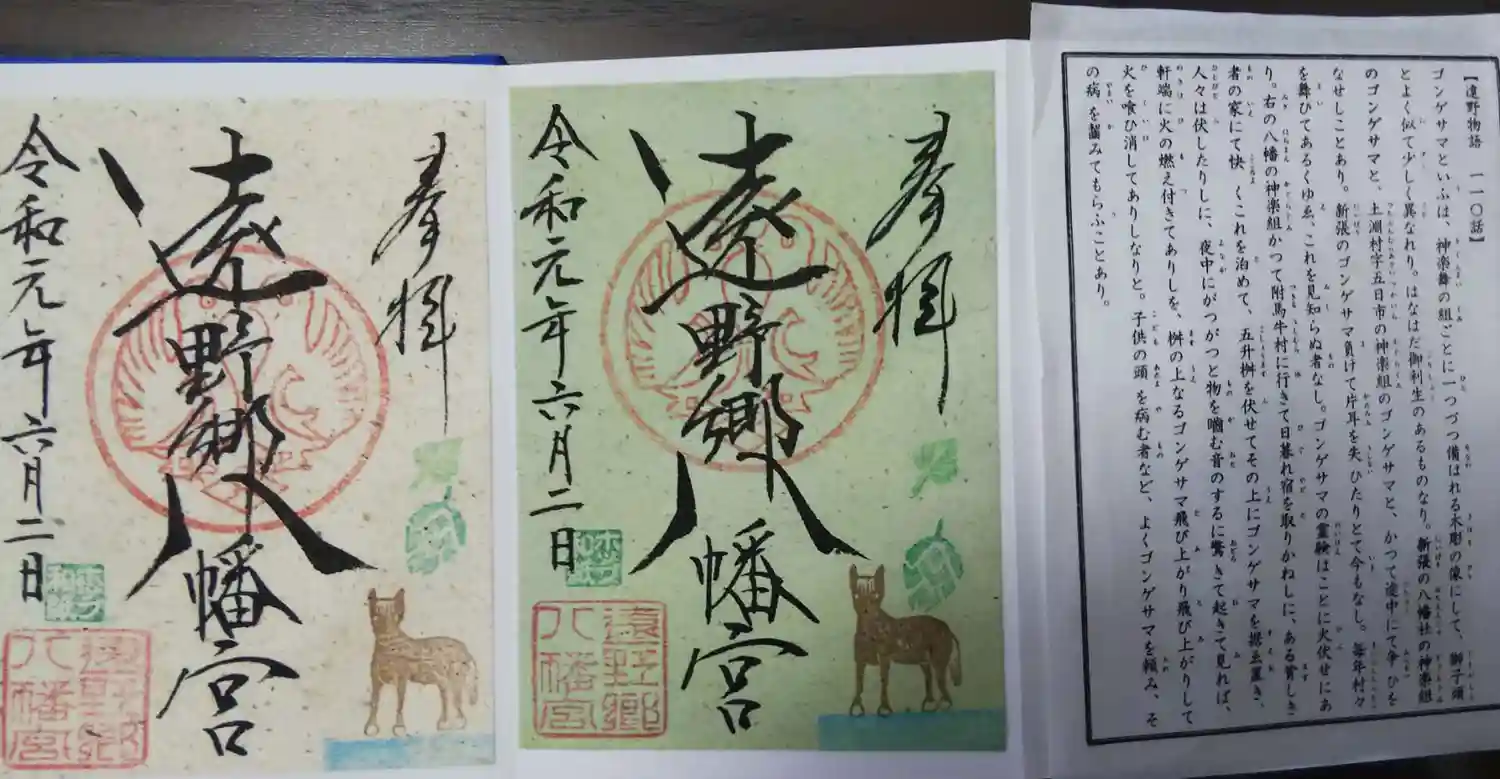 【遠野物語 一一〇話】
ゴンゲサマといふは、神楽舞の組ごとに一つづつ備はれる木彫の像にして、獅子頭
とよく似て少しく異なれり。はなはだ御利生のあるものなり。新張の八幡社の神楽組
のゴンゲサマと、土淵村字五日市の神楽組のゴンゲサマと、かつて途中にて争ひを
なせしことあり。新張のゴンゲサマ負けて片耳を失ひたりとて今もなし。毎年村々
を舞ひてあるくゆゑ、これを見知らぬ者なし。ゴンゲサマの霊験はことに火伏せにあ
り。右の八幡の神楽組かつて附馬牛村に行きて日暮れ宿を取りかねしに、ある貧しき
者の家にて快くこれを泊めて、五升桝を伏せてその上にゴンゲサマを据ゑ置き、
人々は伏したりしに、夜中にがつがつと物を噛む音のするに驚きて起きて見れば、
軒端に火の燃え付きてありしを、桝の上なるゴンゲサマ飛び上がり飛び上がりして
火を喰ひ消してありしなりと。子供の頭を病む者など、よくゴンゲサマを頼み、そ
の病を齧みてもらふことあり。
奉拝
遠野郷八幡宮
令和元年六月二日
遠野郷
八幡宮
奉拝
遠野郷八幡宮
令和元年六月二日
遠野郷
八幡宮